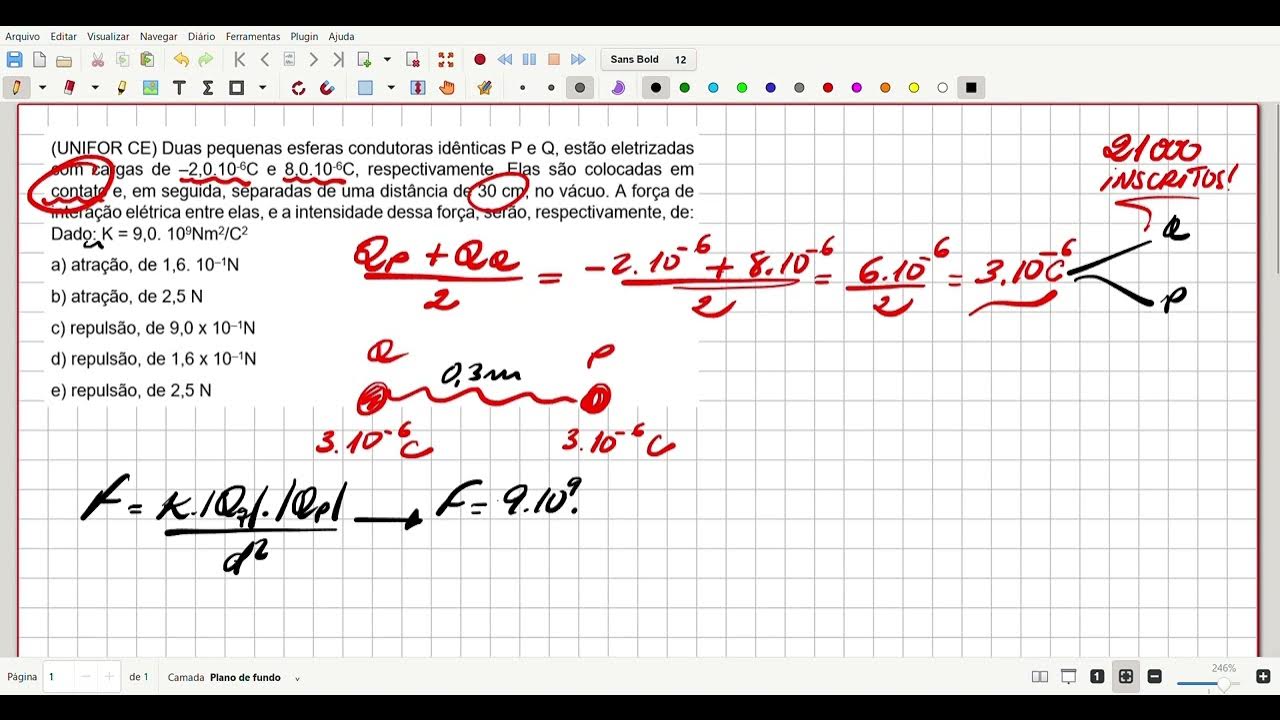 Arquivo Editar Visualizar Navegar Diário Ferramentas Plugin Ajuda
Sans Bold 12
(UNIFOR CE) Duas pequenas esferas condutoras idênticas P e Q, estão eletrizadas
com cargas de –2,0.10⁻⁶C e 8,0.10⁻⁶C, respectivamente. Elas são colocadas em
contato e, em seguida, separadas de uma distância de 30 cm, no vácuo. A força de
interação elétrica entre elas, e a intensidade dessa força, serão, respectivamente, de:
Dado: K = 9,0. 10⁹Nm²/C²
a) atração, de 1,6. 10⁻¹N
b) atração, de 2,5 N
c) repulsão, de 9,0 x 10⁻¹N
d) repulsão, de 1,6 x 10⁻¹N
e) repulsão, de 2,5 N
21000
INSCRITOS!
(Qp + QQ)/2 = (-2.10⁻⁶ + 8.10⁻⁶)/2 = 6.10⁻⁶/2 = 3.10⁻⁶C
Q
P
Q P
0,3m
3.10⁻⁶C 3.10⁻⁶C
F = K.|Q |.|Qp|/d² → F = 9.10⁹.
Página 1 de 1 Camada Plano de fundo
1
246%